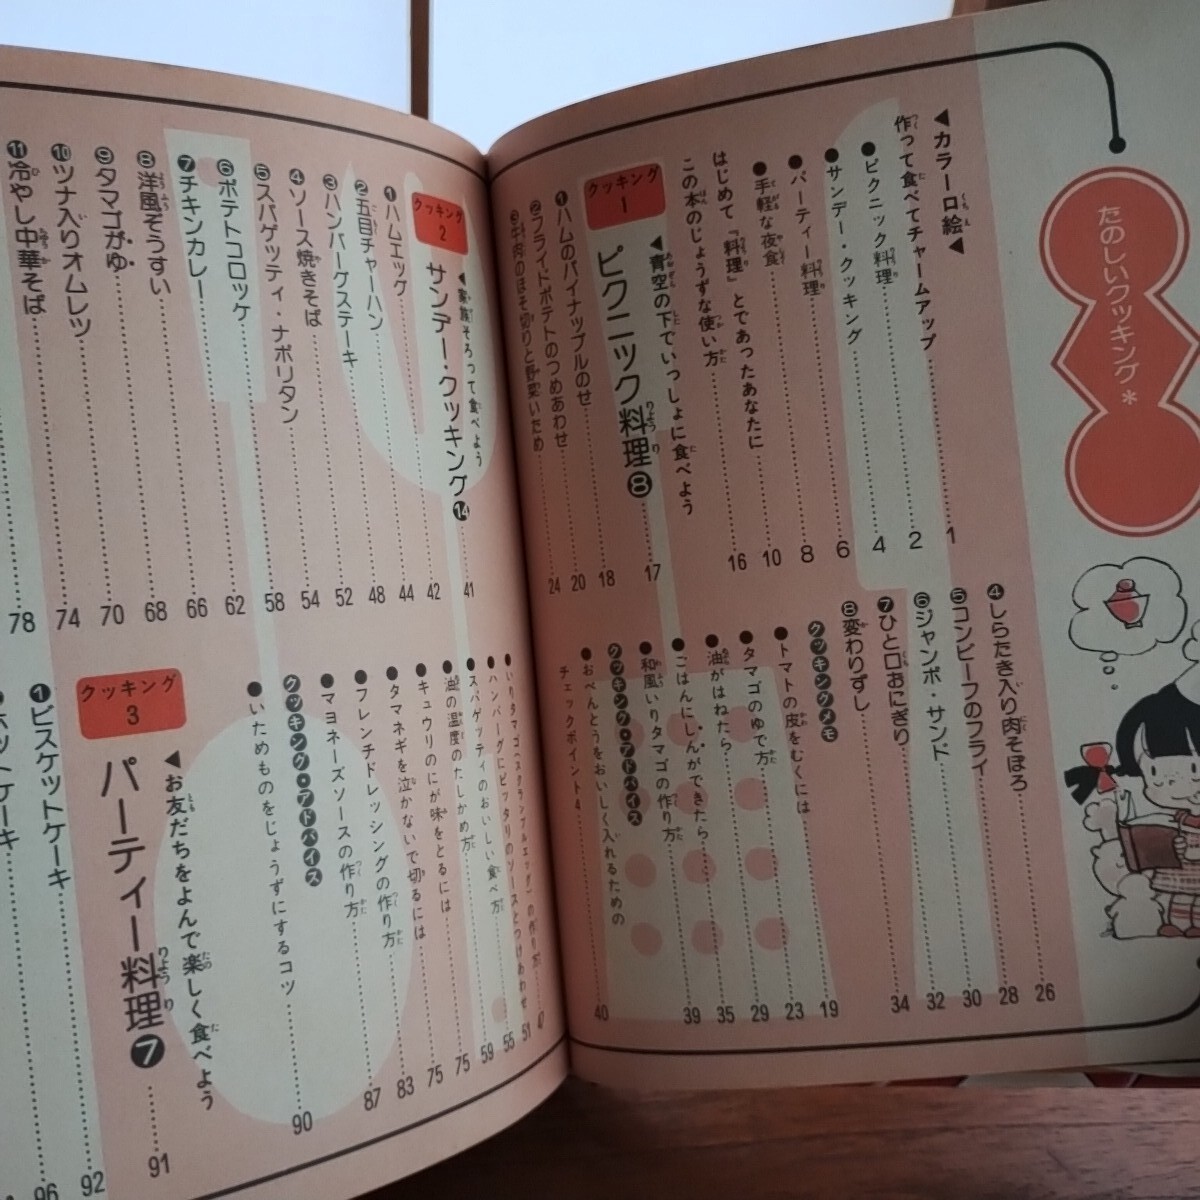 たのしいクッキング*
◀カラー口絵◀
作って食べてチャームアップ……1
●ピクニック料理……2
●サンデー・クッキング……4
●パーティー料理……6
●手軽な夜食……8
はじめて『料理』とであったあなたに……10
この本のじょうずな使い方……16
クッキング1
◀青空の下でいっしょに食べよう
ピクニック料理❽……17
❶ハムのパイナップルのせ……18
❷フライドポテトのつめあわせ……20
❸牛肉のほそ切りと野菜いため……24
❹しらたき入り肉そぼろ……26
❺コンビーフのフライ……28
❻ジャンボ・サンド……30
❼ひと口おにぎり……32
❽変わりずし……34
クッキングメモ
●トマトの皮をむくには……19
●タマゴのゆで方……23
●油がはねたら……29
●ごはんにしんができたら……35
●和風いりタマゴの作り方……39
クッキング・アドバイス
●おべんとうをおいしく入れるための
チェックポイント4……40
クッキング2
◀家族そろって食べよう
サンデー・クッキング⓮……41
❶ハムエッグ……42
❷五目チャーハン……44
❸ハンバーグステーキ……48
❹ソース焼きそば……52
❺スパゲッティ・ナポリタン……54
❻ポテトコロッケ……58
❼チキンカレー……62
❽洋風ぞうすい……66
❾タマゴがゆ……68
❿ツナ入りオムレツ……70
⓫冷やし中華そば……74
78
●いりタマゴ(スクランブルエッグ)の作り方……47
●ハンバーグにピッタリのソースとつけあわせ……51
●スパゲッティのおいしい食べ方……55
●油の温度のたしかめ方……59
●キュウリのにが味をとるには……75
●タマネギを泣かないで切るには……75
●フレンチドレッシングの作り方……83
●マヨネーズソースの作り方……87
クッキング・アドバイス
●いためものをじょうずにするコツ……90
クッキング3
◀お友だちをよんで楽しく食べよう
パーティー料理❼……91
❶ビスケットケーキ……92
ホットケーキ……96